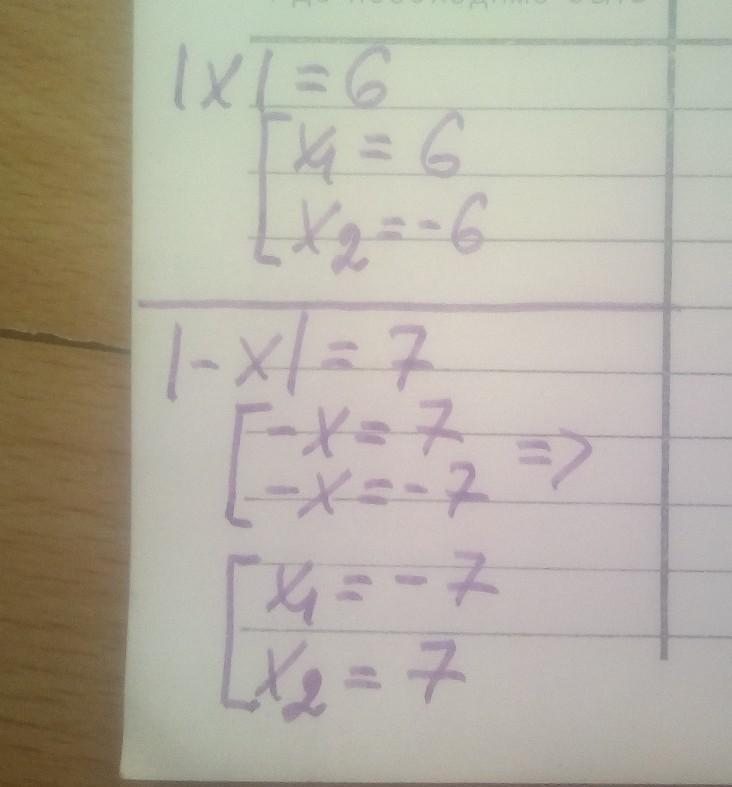 |x| = 6
[ x₁ = 6
x₂ = -6
|-x| = 7
[ -x = 7 =>
-x = -7
[ x₁ = -7
x₂ = 7